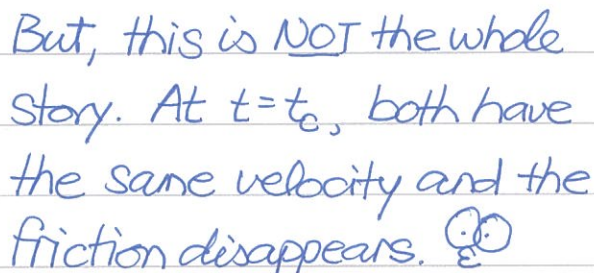 But, this is NOT the whole
story. At t=t_c, both have
the same velocity and the
friction disappears.